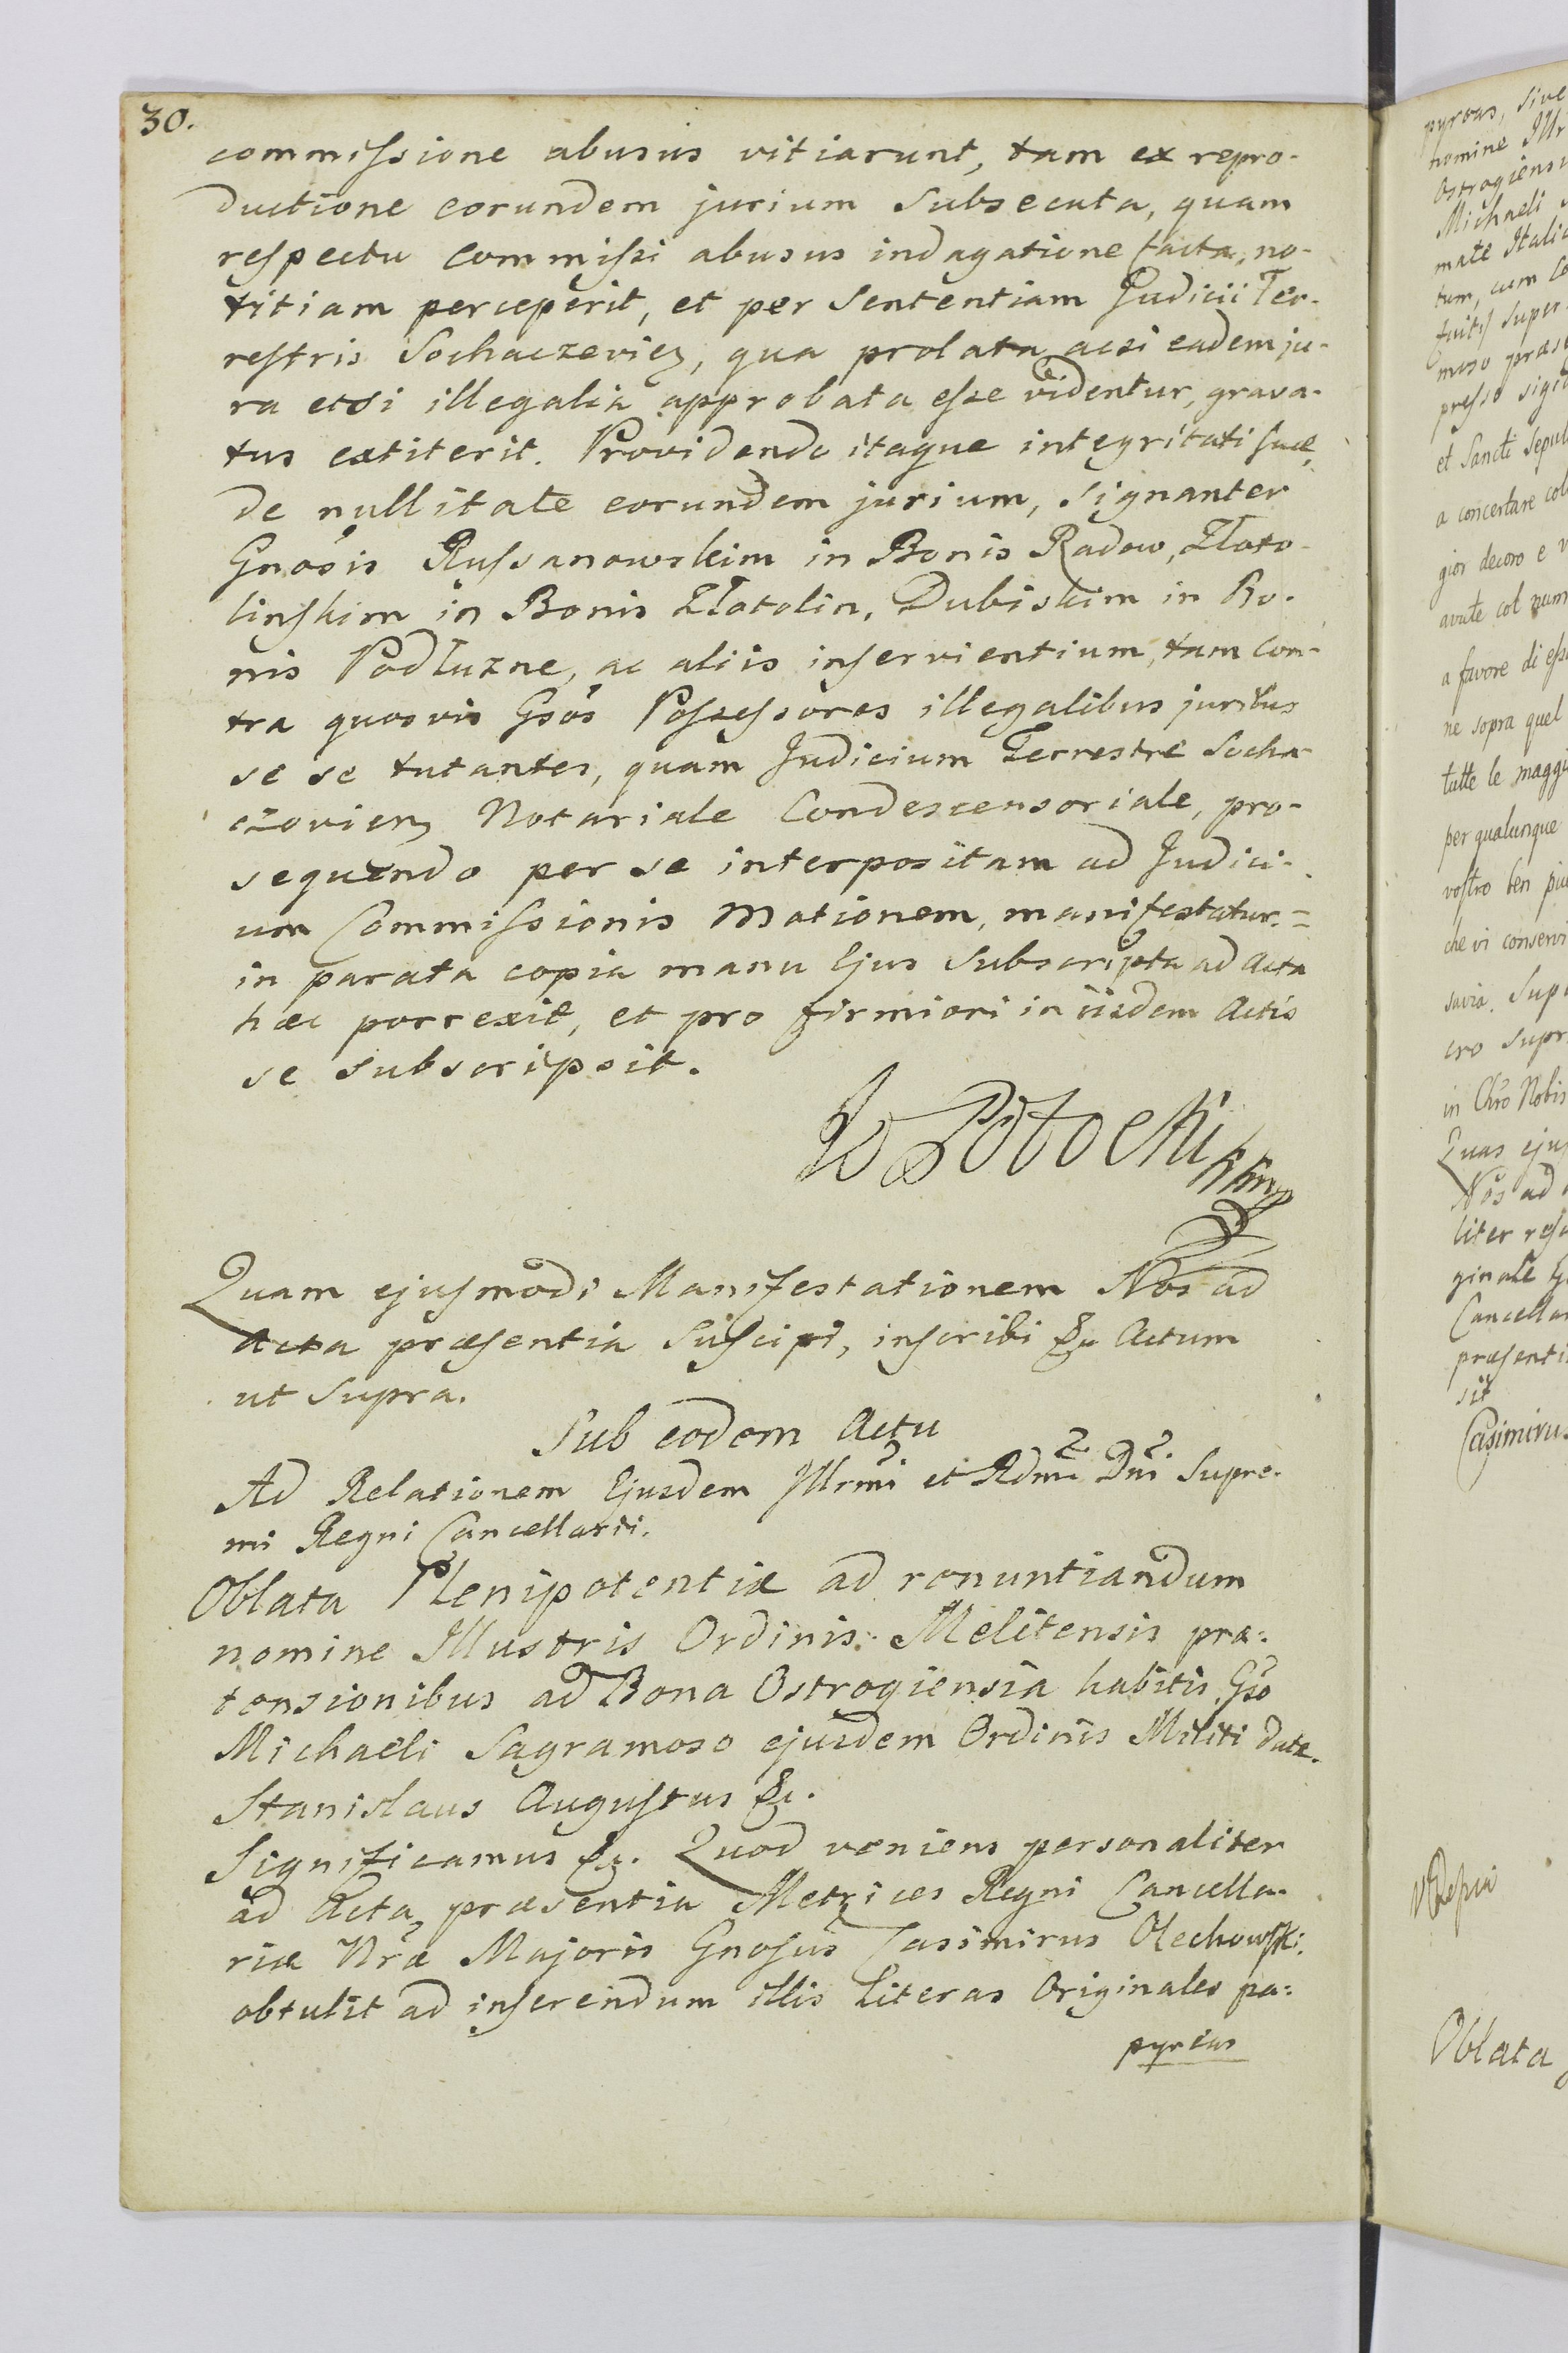 30.
commissione abusus vitiarunt, tam ex repro-
ductione eorundem jurium subsecuta, quam
respectu commissi abusus indagatione facta, no-
titiam perceperit, et per Sententiam Judicii Ter-
restris Sochaczevien, qua prolata acsi eadem ju-
ra etsi illegalia approbata esse videntur, grava-
tus extiterit. Providendo itaque integritati suæ,
de nullitate eorundem jurium, signanter
Gnosis Russanowskim in Bonis Radow, Złoto-
linskim in Bonis Złotolin, Dubiskim in Bo-
nis Podłuzne, ac aliis inservientium, tam con-
tra quosvis Gsos Possessores illegalibus juribus
se se tutantes, quam Judicium Terrestre Socha-
czovien, Notariale Condescensoriale, pro-
sequendo per se interpositam ad Judici-
um Commissionis Motionem, manifestatur.=
in parata copia manu Ejus subscripta ad Acta
hæc porrexit, et pro firmiori in iisdem Actis
se subscripsit.
Potocki
Quam ejusmodi Manifestationem Nos ad
Acta præsentia suscipi, inscribi &c Actum
ut supra.
Sub eodem Actu
Ad Relationem Ejusdem Illrmi et Rdmi Dni Supre-
mi Regni Cancellarii.
Oblata Plenipotentiæ ad renuntiandum
nomine Illustris Ordinis Melitensis præ-
tensionibus ad Bona Ostrogiensia habitis Gso
Michaeli Sagramoso ejusdem Ordinis Militi datæ.
Stanislaus Augustus &c.
Significamus &c. Quod veniens personaliter
ad Acta præsentia Metrices Regni Cancella-
riæ Nræ Majoris Gnosus Casimirus Olechowski,
obtulit ad inserendum illis Literas Originales pa-
pyreas
pyreas, sive
nomine Illr
Michaeli
tum, cum
presso
et Sancti
a concertare
gior decoro e
avute col
a favore di
ne sopra quel
tutte le
per qualunque
vostro ben
che vi
in Chro Nobis
Nos ad
liter
Casimirus
Oblata